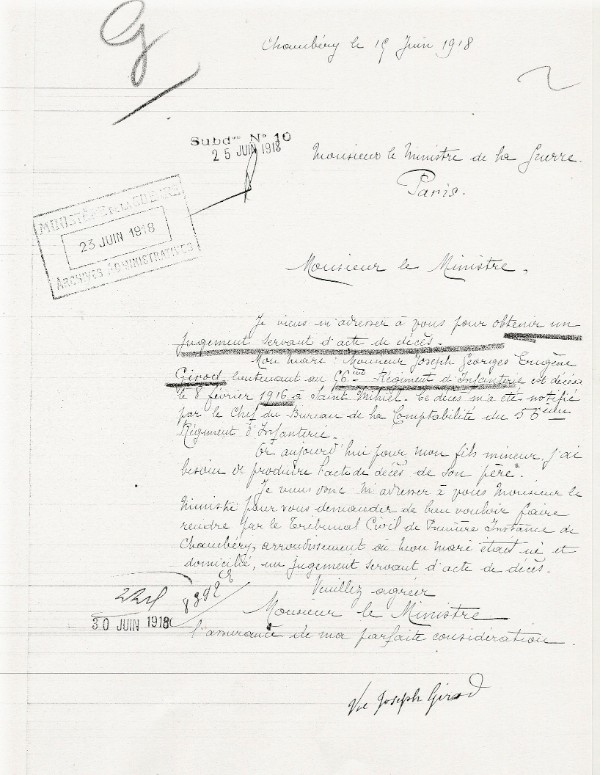 G
Chambéry le 19 Juin 1918
Subdon No 10
25 JUIN 1918
Monsieur le Ministre de la Guerre.
Paris.
MINISTÈRE DE LA GUERRE
23 JUIN 1918
ARCHIVES ADMINISTRATIVES
Monsieur le Ministre.
Je viens m'adresser à vous pour obtenir un
jugement servant d'acte de décès.
Mon mari, Monsieur Joseph Georges Eugène
Girod, lieutenant au 56ème Régiment d'Infanterie est décédé
le 8 février 1916 à Saint Mihiel. Ce décès m'a été notifié
par le Chef du Bureau de la Comptabilité du 56ème
Régiment d'Infanterie.
Or aujourd'hui pour mon fils mineur, j'ai
besoin de produire l'acte de décès de son père.
Je viens donc m'adresser à vous Monsieur le
Ministre pour vous demander de bien vouloir faire
rendre par le Tribunal Civil de Première Instance de
Chambéry, arrondissement où mon mari était né et
domicilié, un jugement servant d'acte de décès.
Veuillez agréer
Monsieur le Ministre
l'assurance de ma parfaite considération.
30 JUIN 1918
Vve Joseph Girod